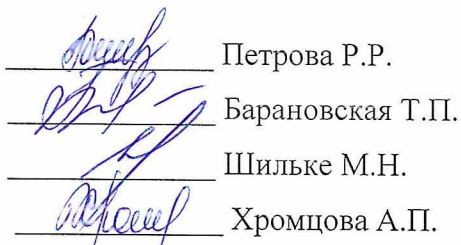 Петрова Р.Р.
Барановская Т.П.
Шильке М.Н.
Хромцова А.П.